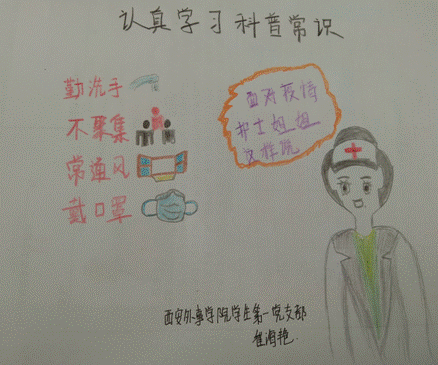 认真学习科普常识
勤洗手
不聚集
常通风
戴口罩
面对疫情
护士姐姐
这样说
西安外事学院学生第一党支部